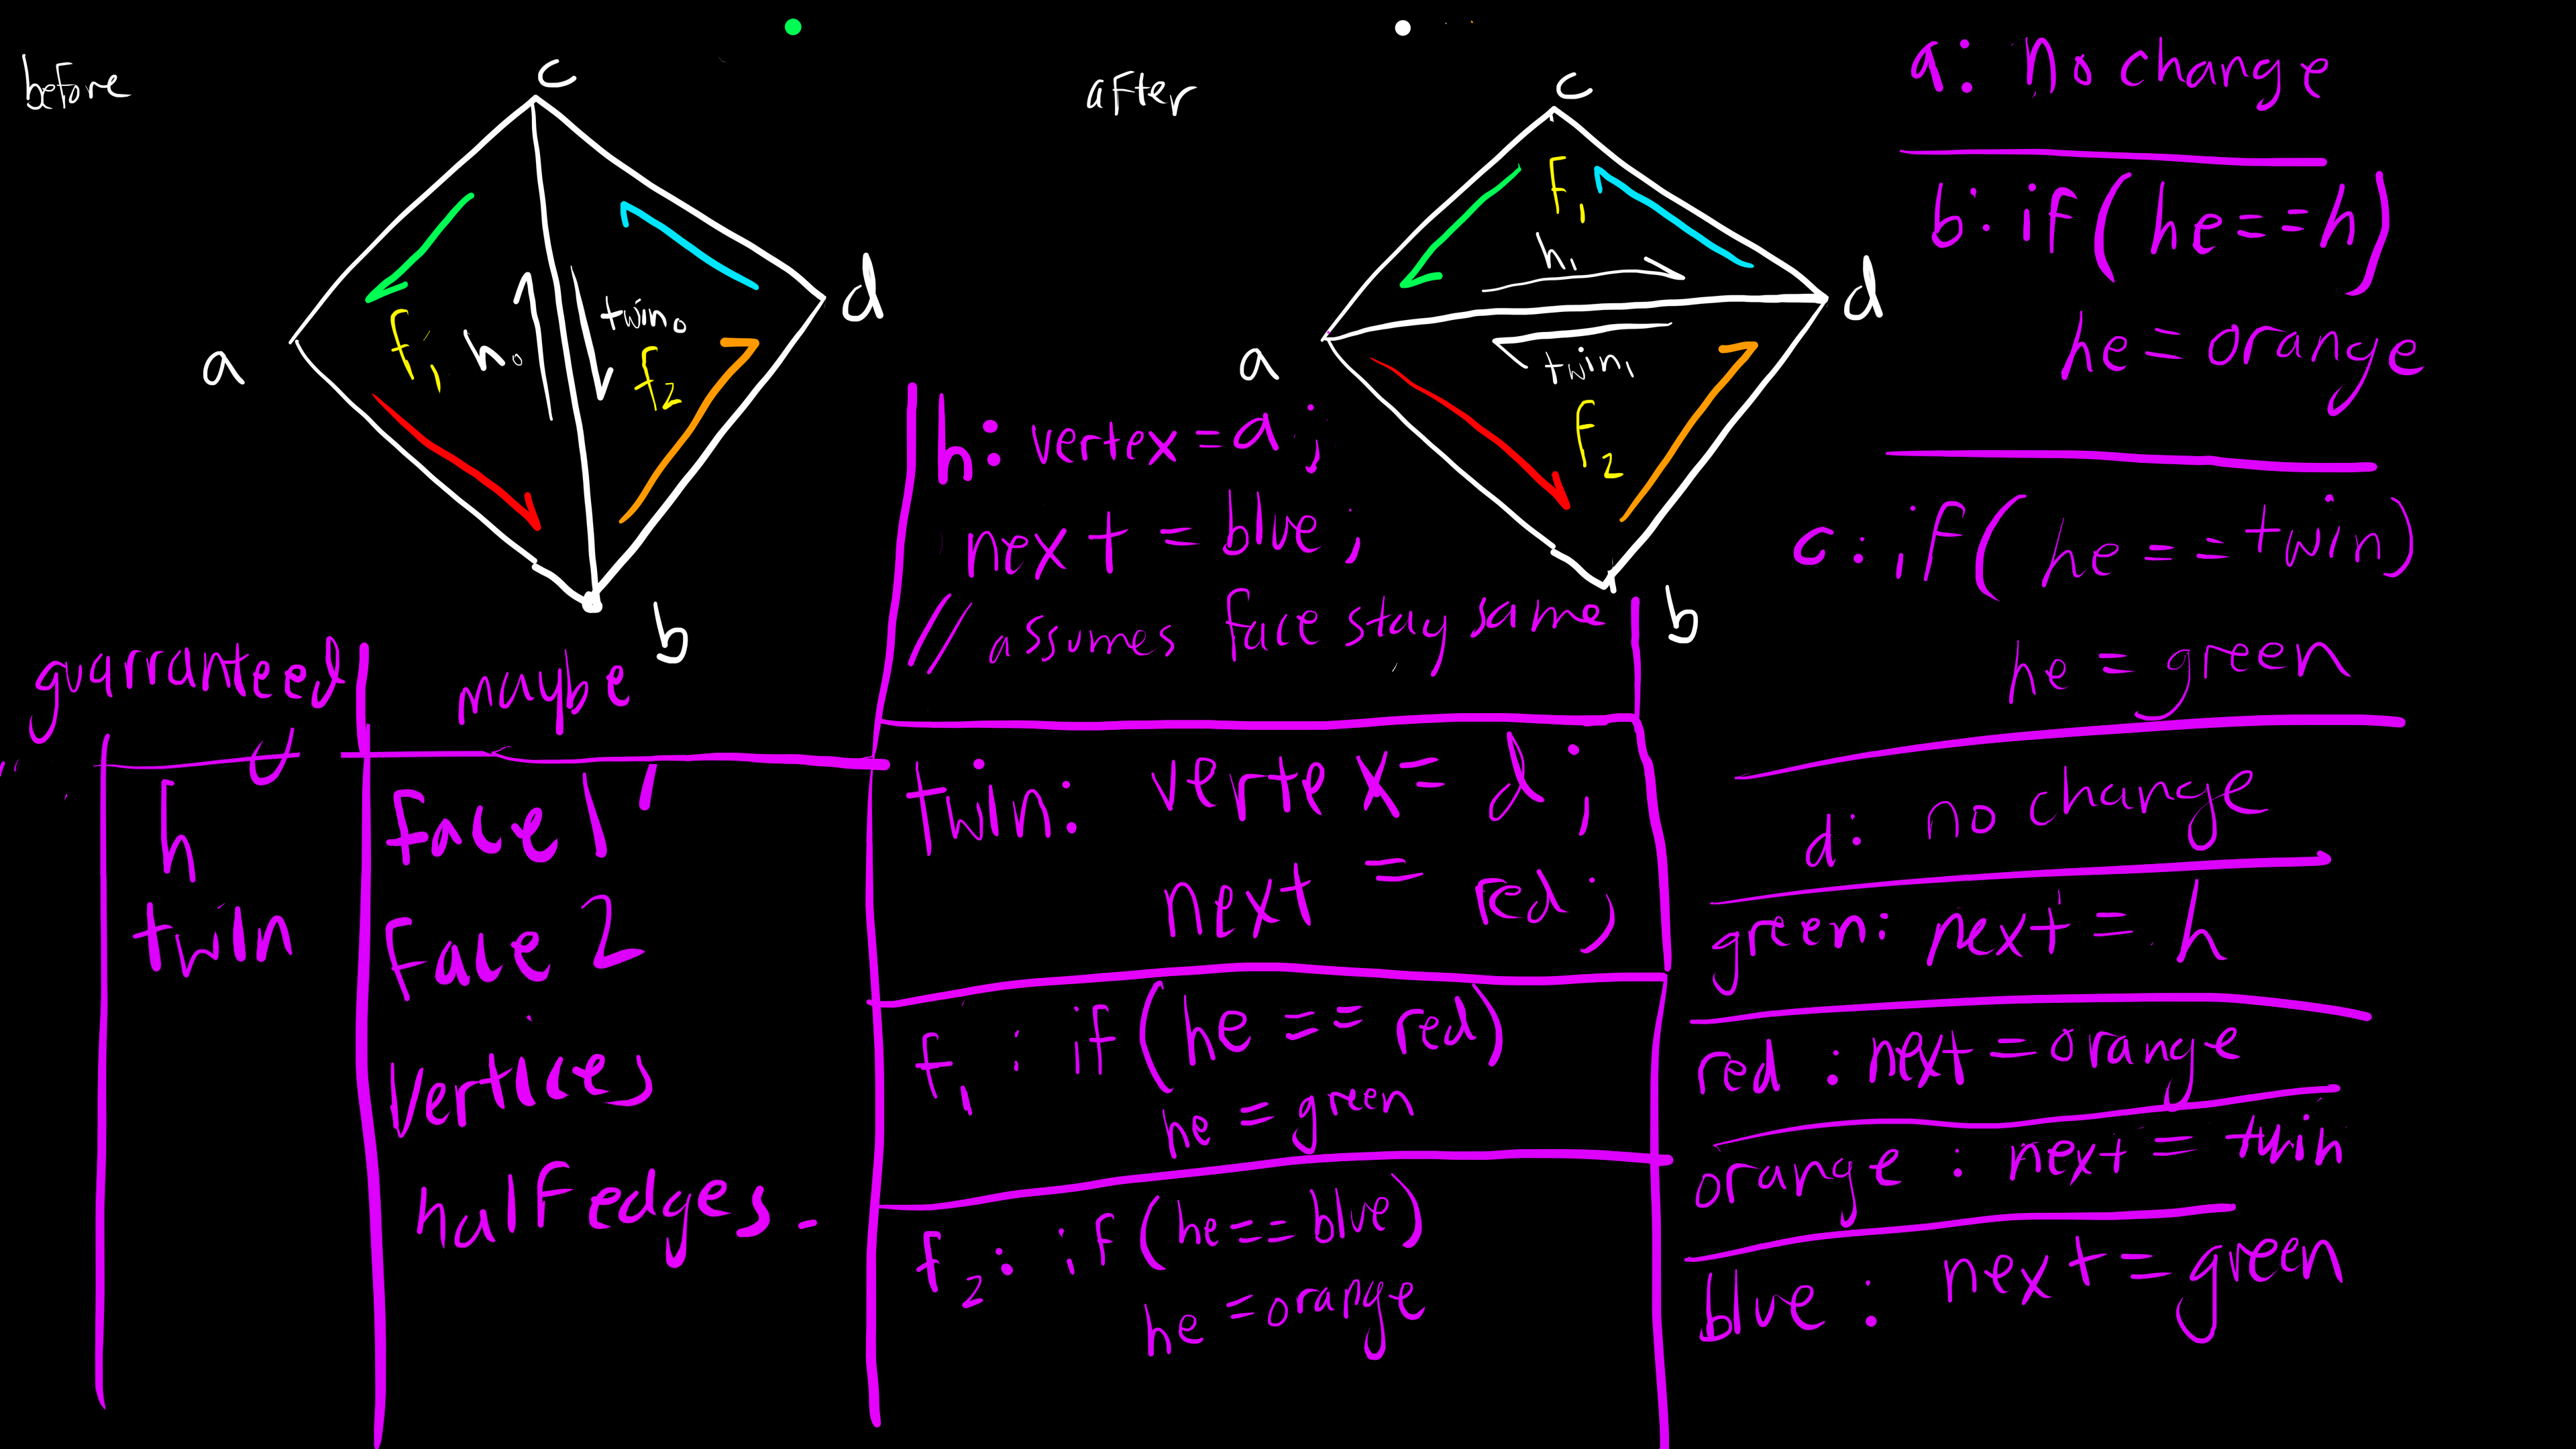 before
c
a
d
b
f1
h0
twin0
f2
after
c
a
d
b
f1
h1
twin1
f2
guarranteed
maybe
h
twin
face 1
face 2
vertices
half edges.
h: vertex = a;
next = blue;
// assumes face stay same
twin: vertex = d;
next = red;
f1: if (he == red)
he = green
f2: if (he == blue)
he = orange
a: no change
b: if (he == h)
he = orange
c: if (he == twin)
he = green
d: no change
green: next = h
red: next = orange
orange: next = twin
blue: next = green